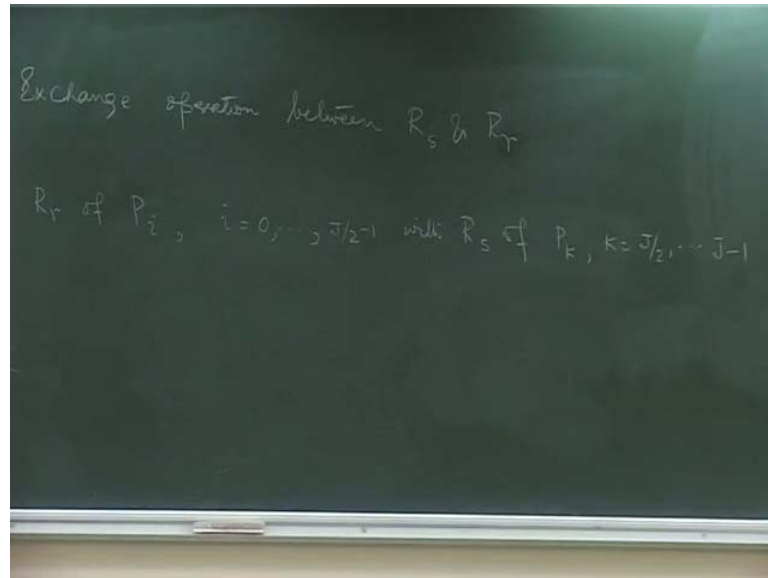 Exchange operation between R_s & R_r
R_r of P_i, i=0,..., J/2-1 with R_s of P_k, k=J/2,... J-1